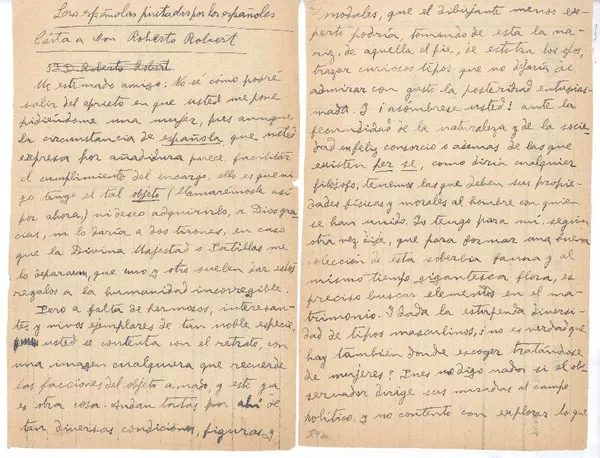 Las españolas pintadas por los españoles
Carta a Don Roberto Robert
S. D. Roberto Robert
Mi estimado amigo: No sé cómo podré
salir del aprieto en que usted me pone
pidiéndome una mujer, pues aunque
la circunstancia de española que usted
expresa por añadidura parece facilitar
el cumplimiento del encargo, ello es que ni
yo tengo el tal objeto (llamaremosle así
por ahora,) ni deseo adquirirlo, a Dios gra
cias, ni lo daría a dos tirones, en caso
que la Divina Majestad o Patillas me
lo deparasen, que uno y otro suelen dar estos
regalos a la humanidad incorregible.
Pero a falta de hermosos, interesan-
tes y vivos ejemplares de tan noble especie,
usted se contenta con el retrato, con
una imagen cualquiera que recuerde
las facciones del objeto amado, y esto ya
es otra cosa. Andan tantas por ahí de
tan diversas condiciones, figuras y
modales, que el dibujante menos ex-
perto podría, tomando de esta la na-
riz, de aquella el pie, de estotra los ojos,
trazar curiosos tipos que no dejaría de
admirar con gusto la posteridad entusias-
mada. Y ¡asómbrese usted! ante la
fecundidad de la naturaleza y de la socie-
dad en feliz consorcio o ademas de las que
existen per se, como diría cualquier
filósofo, tenemos las que deben sus propie-
dades físicas y morales al hombre con quien
se han unido. Yo tengo para mí, según
otra vez dije, que para formar una buena
colección de esta soberbia fauna y al
mismo tiempo gigantesca flora, es
preciso buscar elementos en el ma-
trimonio. Y dada la estupenda diversi-
dad de tipos masculinos, ¿no es verdad que
hay también donde escoger tratándose
de mujeres? Pues no digo nada si el ob-
servador dirige sus miradas al campo
político, y no contento con explorar lo que